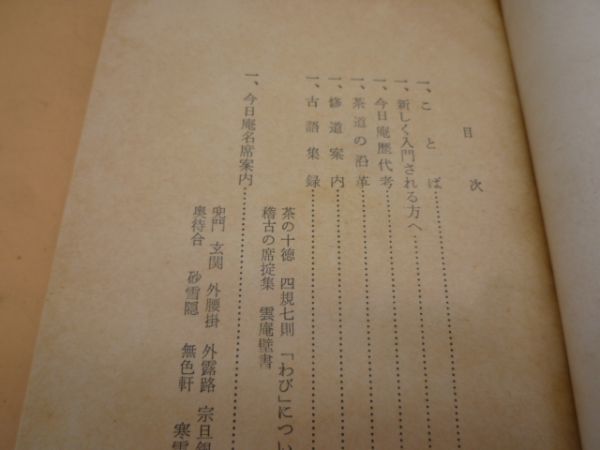 目次
一、ことば
一、新しく入門される方へ
一、今日庵歴代考
一、茶道の沿革
一、修道案内
一、古語集録
茶の十徳 四規七則 「わび」につい
稽古の席掟集 雲庵壁書
一、今日庵名席案内
兜門 玄関 外腰掛 外露路 宗旦銀
奥待合 砂雪隠 無色軒 寒雲